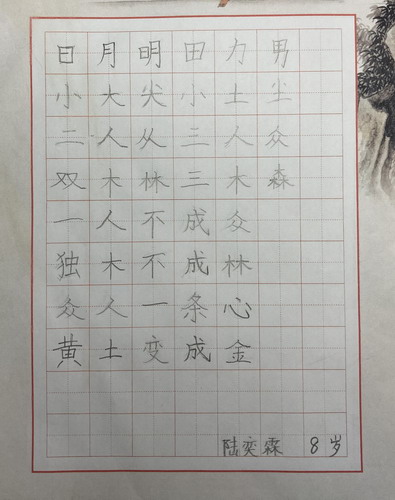 日月明田力男
小大尖小土尘
二人从三人众
双木林三木森
一人不成众
独木不成林
众人一条心
黄土变成金
陆奕霖 8岁